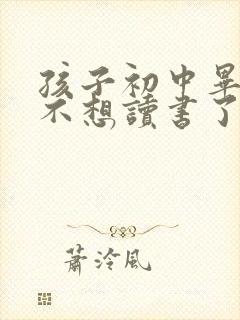 孩子初中畢
不想讀書了
蕭泠風